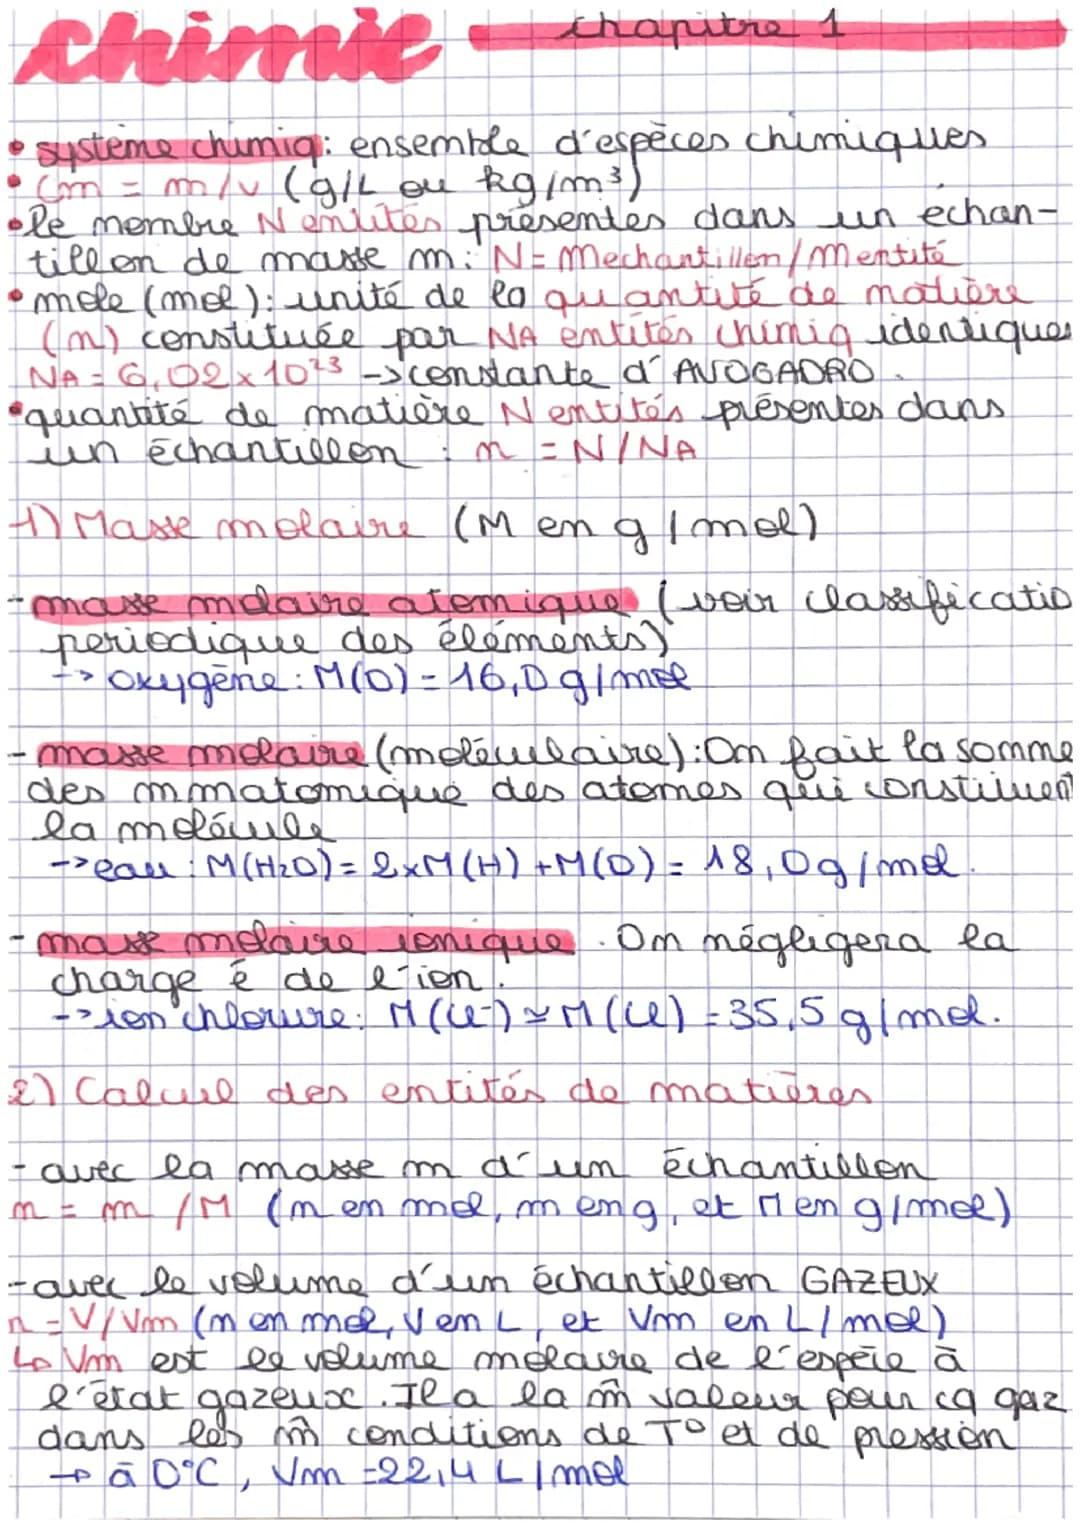 chimie chapitre 1
• système chimiq: ensemble d'espèces chimiques
• Cm = m/v (g/L ou kg/m³)
• le nombre N entités présentes dans un échan-
tillon de masse m: N= Mechantillon/Mentité
• mole (mol): unité de la quantité de matière
(n) constituée par NA entités chimiq identiques
NA = 6,02 × 10²³ -> constante d'AVOGADRO.
• quantité de matière N entités présentes dans
un échantillon : n = N/NA
1) Masse molaire (M en g/mol)
- masse molaire atomique (voir classificatio
periodique des éléments)
-> oxygène: M(O) = 16,0 g/mol
- masse molaire (moléculaire): On fait la somme
des mmatomique des atomes qui constituent
la molécule
-> eau : M(H₂O) = 2xM(H) + M(O) = 18,0g/mol.
- masse molaire ionique. On négligera la
charge é de l'ion.
-> ion chlorure: M(Cl-) ≃ M(Cl) = 35,5 g/mol.
2) Calcul des entités de matières
- avec la masse m d'un échantillon
n = m /M (n en mol, m en g, et M en g/mol)
- avec le volume d'un échantillon GAZEUX
n = V/Vm (n en mol, V en L, et Vm en L/mol)
↳ Vm est le volume molaire de l'espèce à
l'état gazeux. Il a la m̂ valeur pour cq gaz
dans les m̂ conditions de T° et de pression
→ à 0°C, Vm = 22,4 L/mol